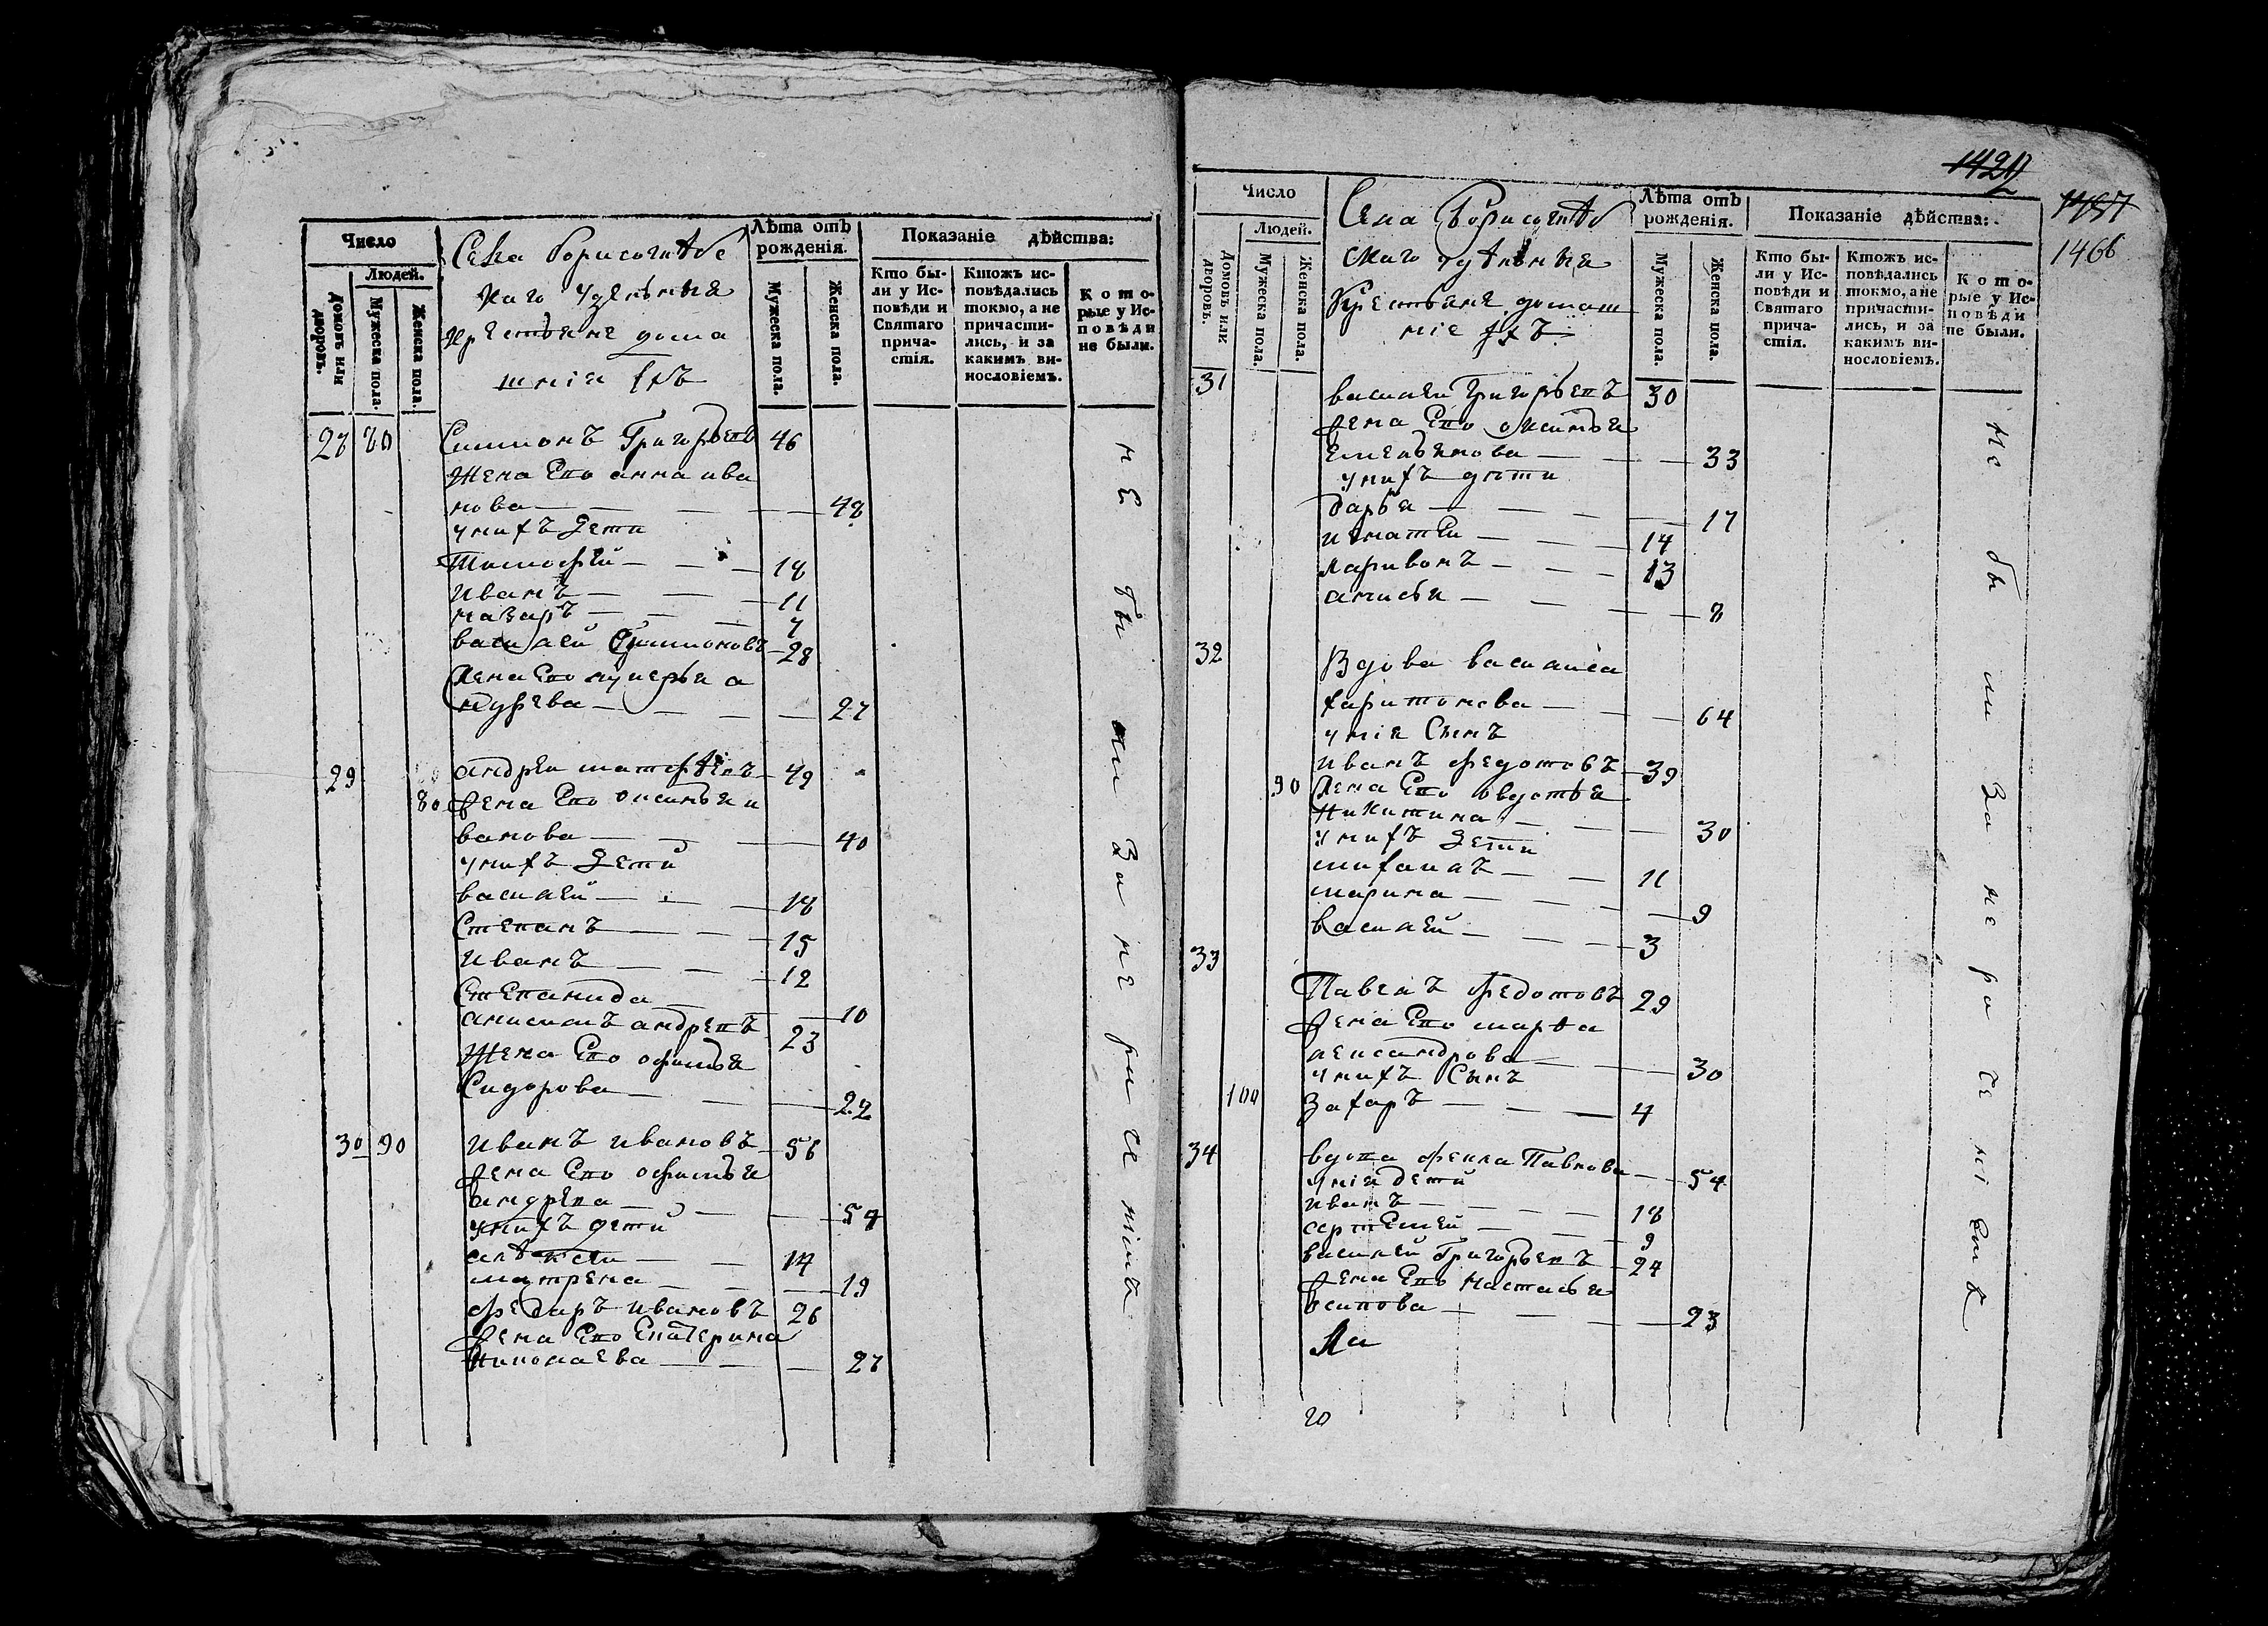 Число
Людей.
Домовъ или дворовъ.
Мужеска пола.
Женска пола.
Села Борисоглѣбс
каго Удельныя
крестьяне дома
шнія ихъ
Лѣта отъ рожденія.
Мужеска пола.
Женска пола.
Показаніе дѣйства:
Кто бы-
ли у Ис-
повѣди и
Святаго
прича-
стія.
Ктожъ ис-
повѣдались
токмо, а не
причасти-
лись, и за
какимъ ви-
нословіемъ.
К о т о-
рые у Ис-
п о в ѣ д и
не были.
28 80 Симионъ Григорьевъ 46
Жена Его анна ива
нова 48
унихъ Дети
Тимофей 18
Иванъ 11
назаръ 7
василей Симионовъ 28
Жена Его лукерья а
27
29 андрей матфѣевъ 49
80 жена Его оксинья и
ванова 40
унихъ Дети
василей 18
Степанъ 15
Иванъ 12
Степанида 10
анисимъ андревъ 23
Жена Его офимья
Сидорова 22
30 90 Иванъ ивановъ 56
жена Его офимья
андрева 54
унихъ дети
алѣксѣи 14
матрена 19
федаръ ивановъ 26
жена Его Екатерина
Николаева 27
не бы ли За не ра че ніемъ
1466
Число
Людей.
Домовъ или дворовъ.
Мужеска пола.
Женска пола.
Села Борисоглѣб
скаго удѣльныя
Крестьяне домаш
ніе ихъ
Лѣта отъ рожденія.
Мужеска пола.
Женска пола.
Показаніе дѣйства:
Кто бы-
ли у Ис-
повѣди и
Святаго
прича-
стія.
Ктожъ ис-
повѣдались
токмо, а не
причасти-
лись, и за
какимъ ви-
нословіемъ.
К о т о-
рые у Ис-
п о в ѣ д и
не были.
31 василей Григорьевъ 30
жена Его оксинья
Емельянова 33
унихъ дѣти
дарья 17
игнатей 14
ларивонъ 13
анисья 8
32 Вдова василиса
харитонова 64
унія Сынъ
иванъ федотовъ 39
90 Жена Его овдотья
Никитина 30
унихъ Дети
михаилъ 11
марина 9
василей 3
33 Павелъ федотовъ 29
жена Его марѳа
лександрова 30
унихъ Сынъ
100 Захаръ 4
34 вдова фекла Павлова 54
унія дети
иванъ 18
артемей 9
василей Григорьевъ 24
жена Его Настасья
осипова 23
20
не бы ли За не ра че ніемъ